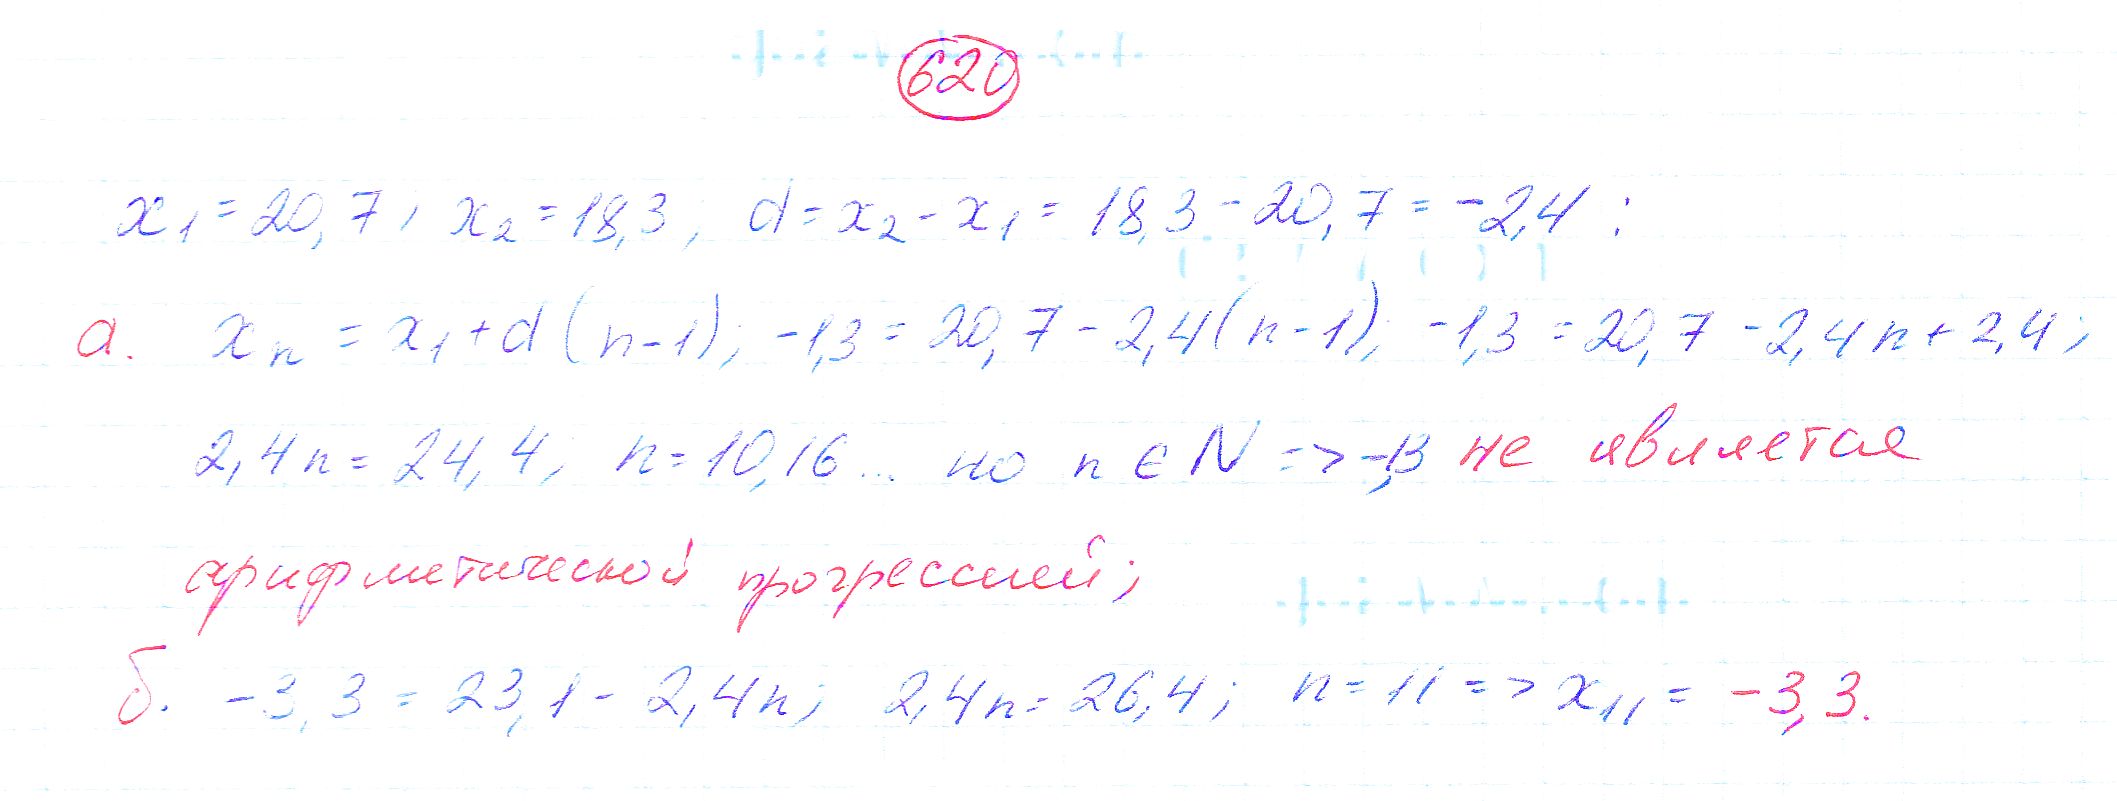 620
x₁ = 20,7; x₂ = 18,3; d = x₂ - x₁ = 18,3 - 20,7 = -2,4:
а. xₙ = x₁ + d(n-1); -1,3 = 20,7 - 2,4(n-1); -1,3 = 20,7 - 2,4n + 2,4;
2,4n = 24,4; n = 10,16... но n ∈ N => -1,3 не является
арифметической прогрессией;
б. -3,3 = 23,1 - 2,4n; 2,4n = 26,4; n = 11 => x₁₁ = -3,3.